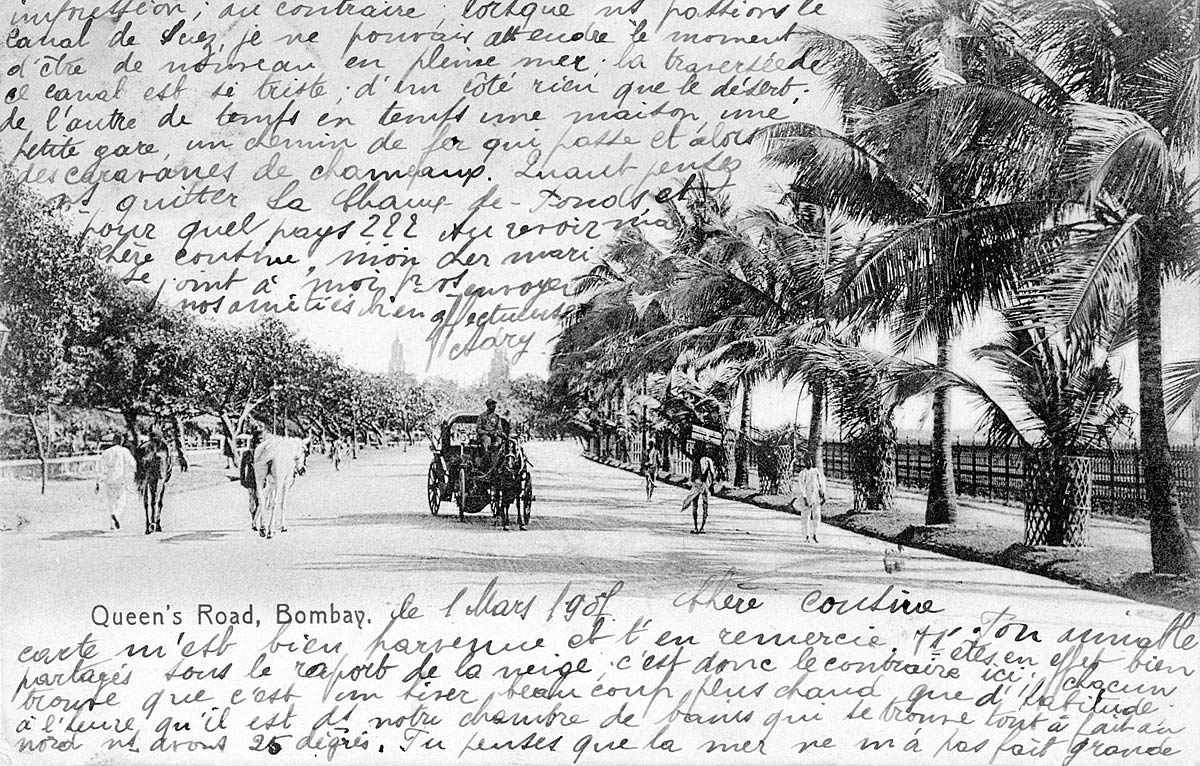 Queen's Road, Bombay.
le 1 Mars 190 Chère cousine
Ton aimable
carte m'est bien parvenue et t'en remercie, Vs êtes en effet bien
partagés sous le raport de la neige, c'est donc le contraire ici, chacun
trouve que c'est un hiver beaucoup plus chaud que d'habitude.
à l'heure qu'il est ds notre chambre de bains qui se trouve tout à fait au
nord ns avons 25 degrés. Tu penses que la mer ne m'a pas fait grande
impression; au contraire, lorsque ns passions le
canal de Suez, je ne pouvais attendre le moment
d'être de nouveau en pleine mer; la traversée de
ce canal est si triste, d'un côté rien que le désert.
de l'autre de temps en temps une maison, une
petite gare, un chemin de fer qui passe et alors
des caravanes de chameaux. Quand pensez
vs quitter La Chaux-de-Fonds et
pour quel pays ??? Au revoir ma
chère cousine, mon cher mari
se joint à moi pr vs envoyer
nos amitiés bien affectueuses